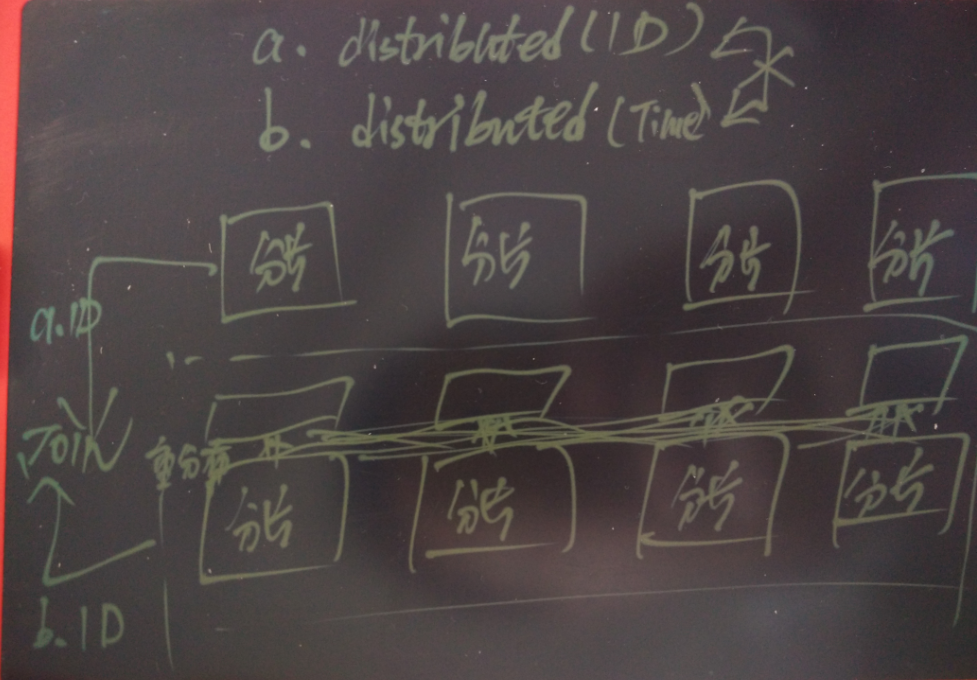 a. distributed(ID)
b. distributed(Time)
分片 分片 分片 分片
a.ID
Join
重分布
分片 分片 分片 分片
b.ID